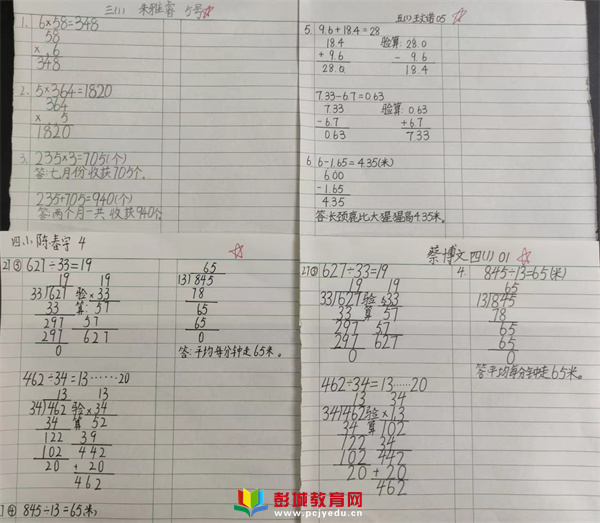 三(1) 朱雅睿 5号
1. 6×58=348
58
× 6
348
2. 5×364=1820
364
× 5
1820
3. 235×3=705(个)
答:七月份收获705个。
235+705=940(个)
答:两个月一共收获940个
5. 9.6+18.4=28
18.4 验算: 28.0
+ 9.6 - 9.6
28.0 18.4
7.33-6.7=0.63
7.33 验算: 0.63
-6.7 +6.7
0.63 7.33
6. 6-1.65=4.35(米)
6.00
-1.65
4.35
答:长颈鹿比大猩猩高4.35米。
四(1) 陈春宇 4
2) ③ 627÷33=19
19 19
33)627 验 ×33
33 算: 57
297 57
297 627
0
462÷34=13……20
13 13
34)462 验 ×34
34 算 52
122 39
102 442
20 + 20
462
④ 845÷13=65米,
65
13)845
78
65
65
0
答:平均每分钟走65米。
蔡博文 四(1) 01
2) ③ 627÷33=19
19 19
33)627 验 ×33
33 算 57
297 57
297 627
0
462÷34=13……20
13 34
34)462 验 ×13
34 算 102
122 34
102 442
20 + 20
0 462
4. 845÷13=65(米)
65
13)845
78
65
65
0
答:平均每分钟走65米。
彭城教育网
www.pcjyedu.cn